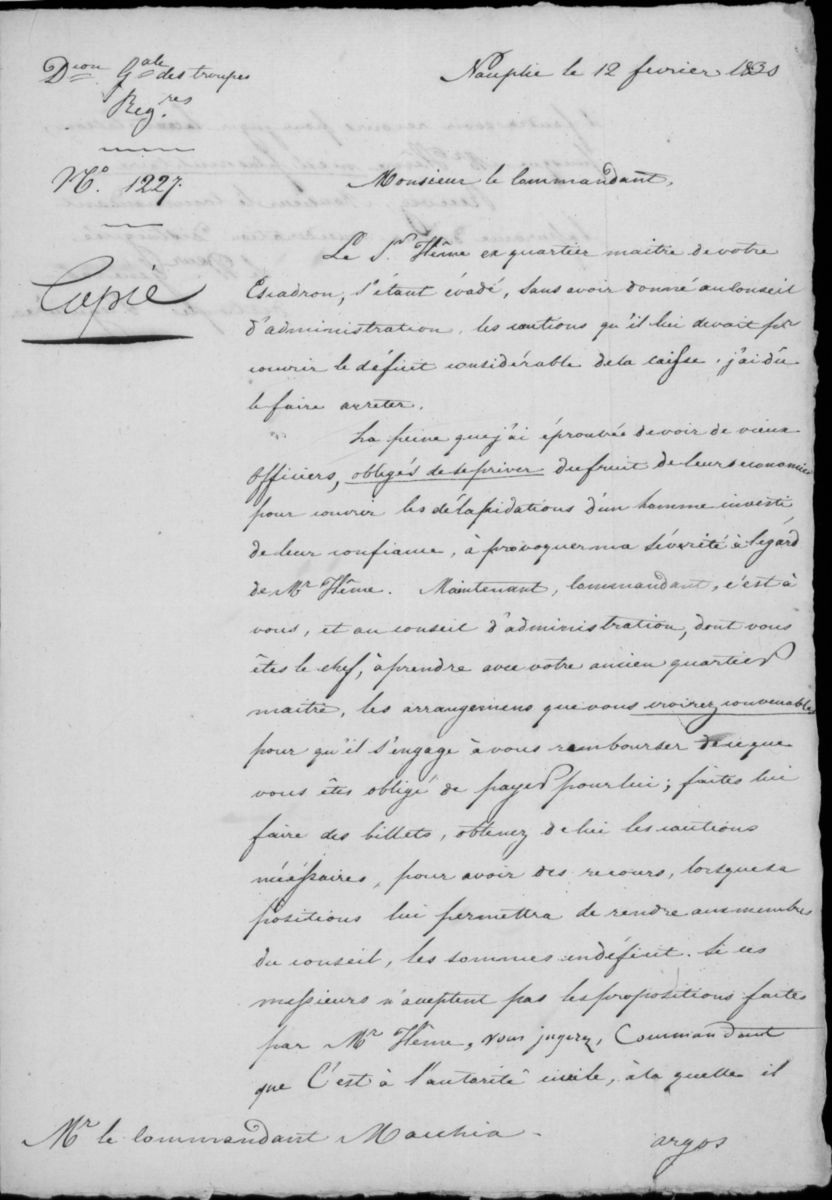 Dion Gale des troupes
Nauplie le 12 fevrier 1830
Regres
No. 1227.
Monsieur le Commandant,
Copie
Le Sr. Hême ex quartier maitre de votre
Escadron, s'étant évadé, sans avoir donné au Conseil
d'administration, les cautions qu'il lui devait pr
couvrir le déficit considérable de la caisse, j'ai dû
le faire arreter.
La peine que j'ai éprouvée de voir de vieux
officiers, obligés de se priver du fruit de leurs economies
pour couvrir les délapidations d'un homme investi
de leur confiance, à provoquer ma sévérité à l'égard
de Mr Hême. Maintenant, Commandant, c'est à
vous, et au conseil d'administration, dont vous
êtes le chef, à prendre avec votre ancien quartier
maitre, les arrangemens que vous croirez convenables
pour qu'il s'engage à vous rembourser de ce que
vous êtes obligé de payer pour lui; faites lui
faire des billets, obtenez de lui les cautions
nécéssaires, pour avoir des recours, lorsque sa
positions lui permettra de rendre aux membres
du conseil, les sommes en déficit. Si ces
messieurs n'acceptent pas les propositions faites
par Mr Hême, vous jugerez, Commandant
que C'est à l'autorité civile, à la quelle il
Mr le Commandant Macchia.
argos